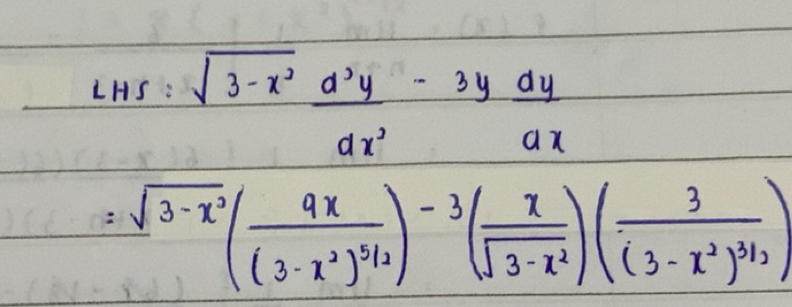 LHS : √(3-x²) d²y/dx² - 3y dy/dx
= √(3-x²) (9x/(3-x²)^5/2) - 3 (x/√(3-x²)) (3/(3-x²)^3/2)